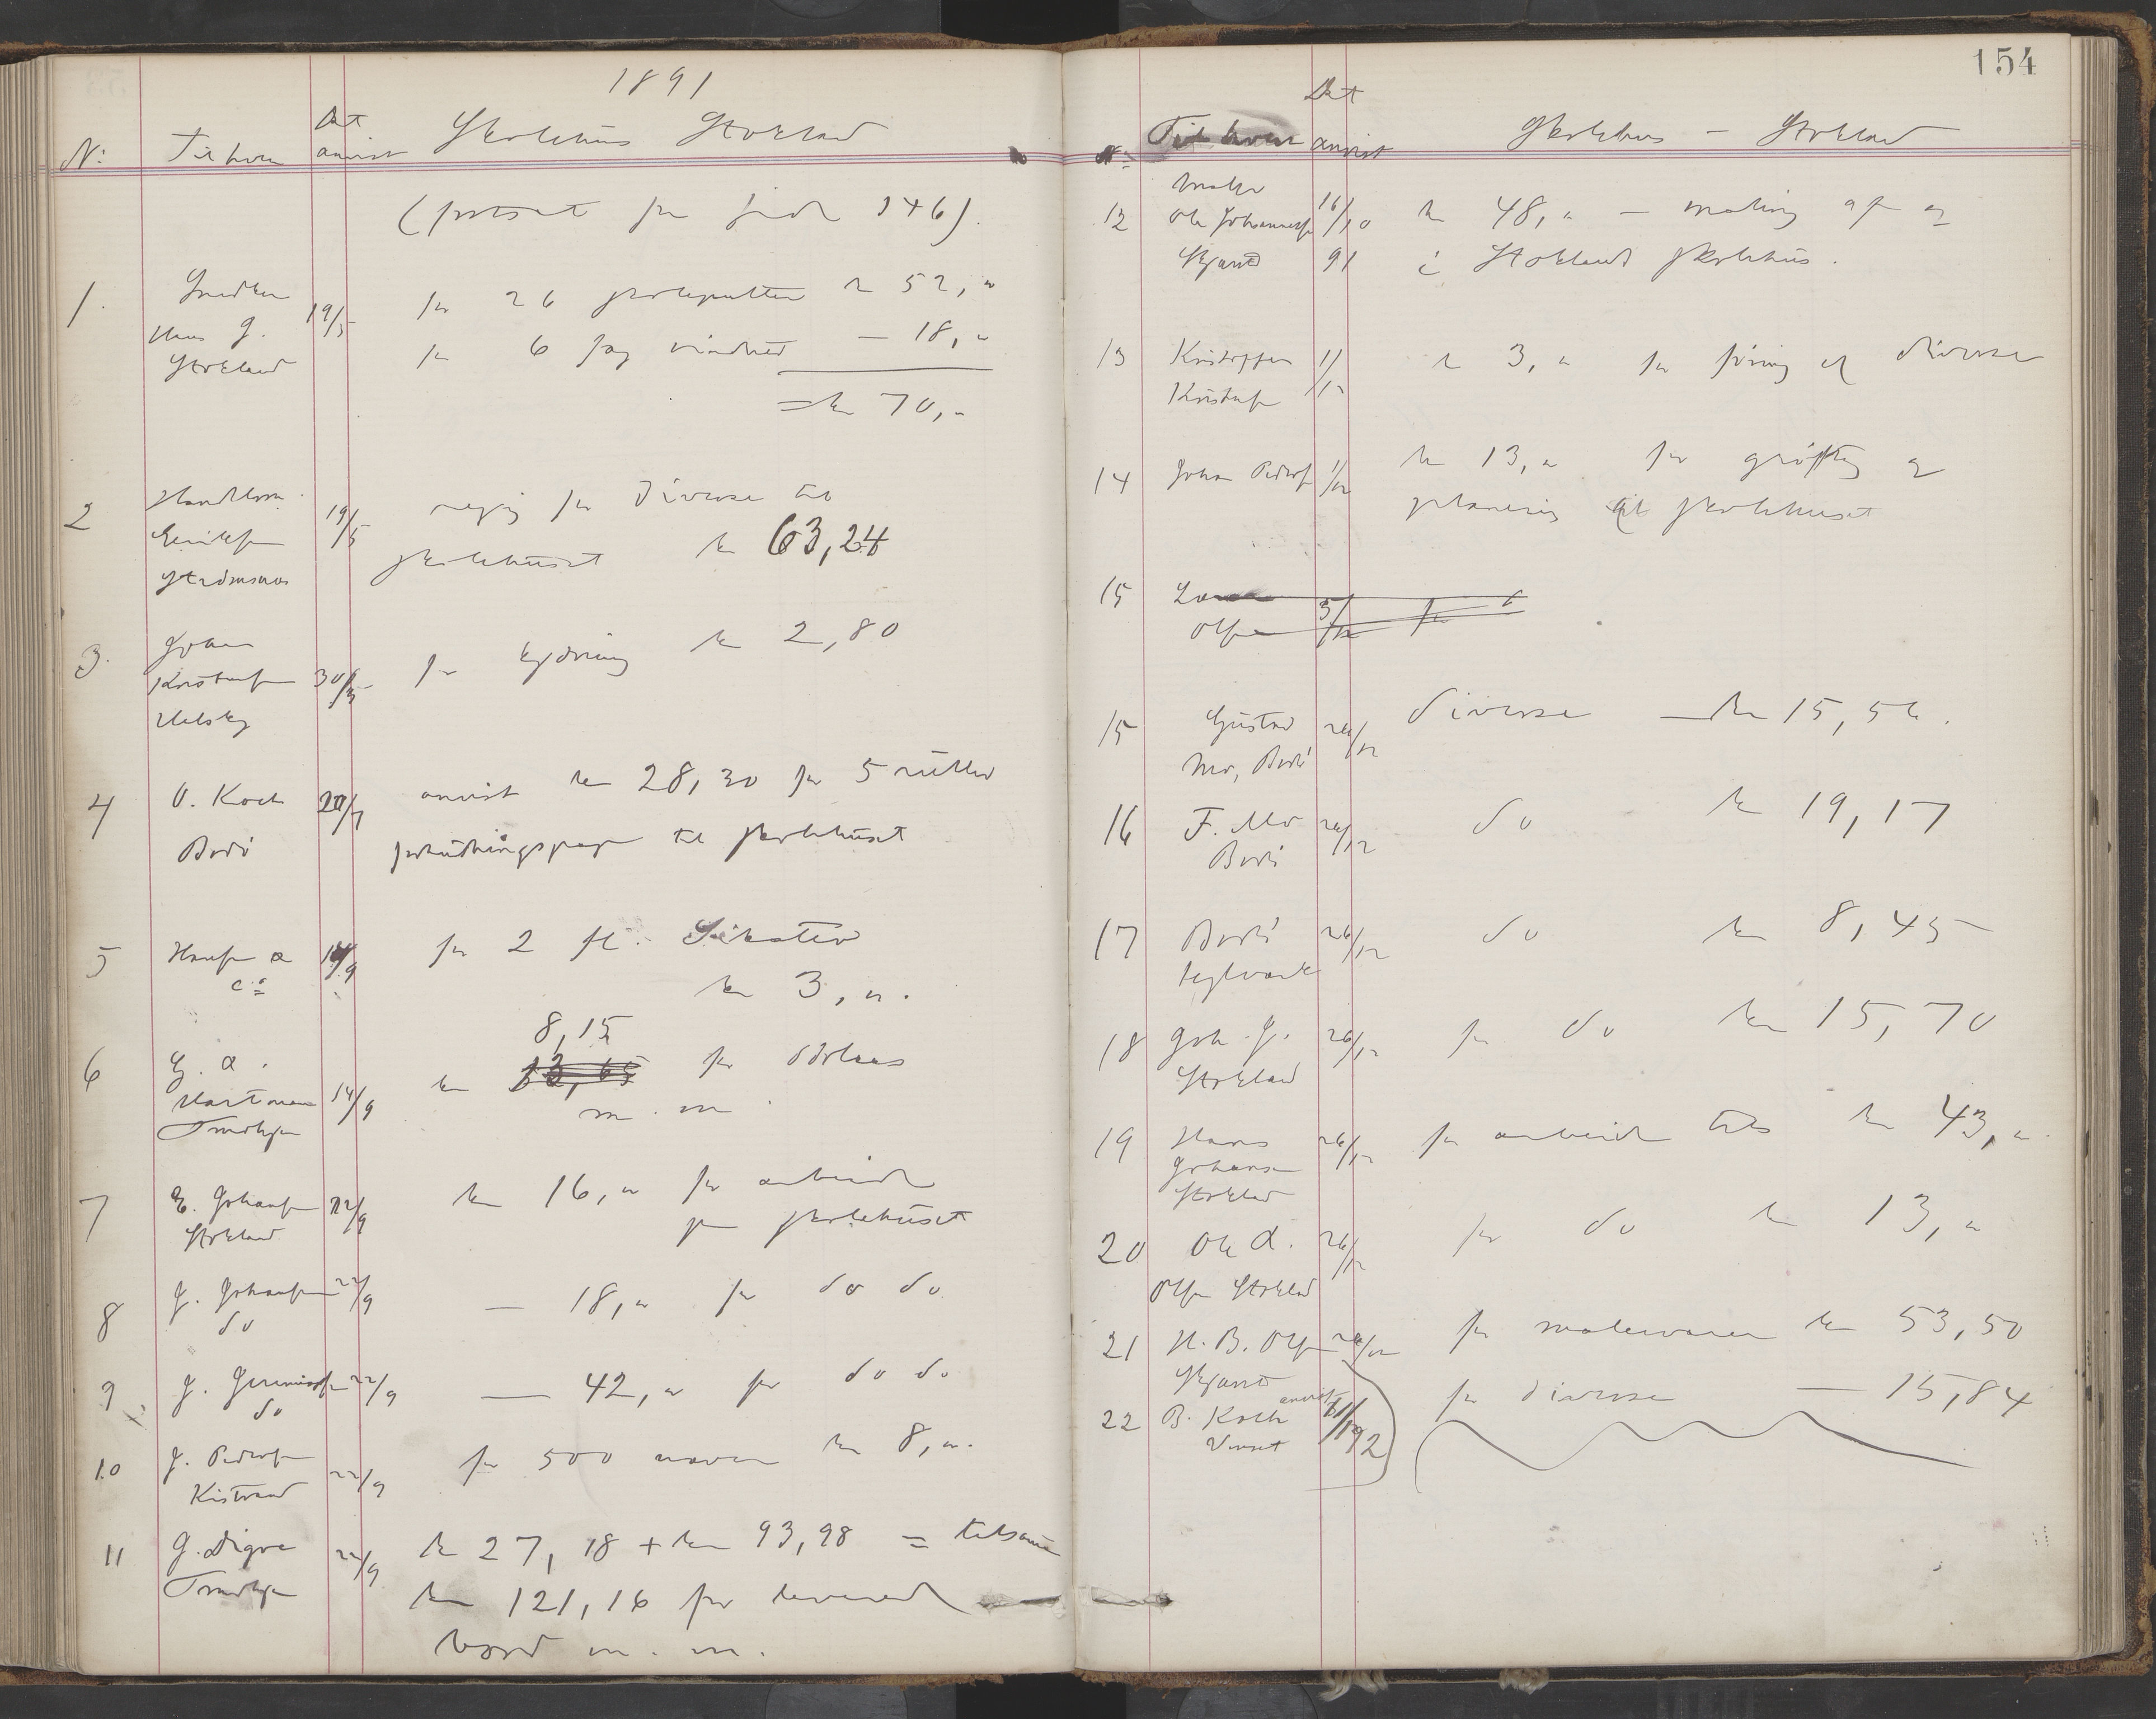 1891
Dat
No: Til hvem anvist Skolehus Stokland
(fortsat fra side 146).
1. Snedker
Hans J. 19/5 for 26 skolepulter kr 52,"
Stokland for 6 fag vinduer — 18,"
= kr 70,"
2 Handelsm.
Eriksen 19/5 regng for diverse til
skolehuset kr 63,24
3. Johan
Kristensen 30/5 for kjøring kr 2,80
4 O. Koch 20/7 anvist kr 28,30 for 5 ruller
Bodö forhudningspap til skolehuset
5 Hansen & 14/9 for 2 fl. Sikativ
Co kr 3,".
8,15
6 E. A. kr 13,65 for dörlaas
Hartman 14/9 m. m.
Trondhjem
7 E. Johansen 22/9 kr 16," for arbeide
Stokland paa skolehuset
8 J. Johansen 22/9 — 18," for do do
do
9 J. Jeremiasen 22/9 — 42," for do do
do
10 J. Pedersen 22/9 for 500 kr 8,".
Kistrand
11 G. Digre 22/9 kr 27,18 + kr 93,98 = tilsam
Trondhjem kr 121,16 for levered
bord m. m.
154
Dat
No: Til hvem anvist Skolehus — Stokland
Maler
12 Ole Johannesen 16/10 kr 48," — maling af og
Skjanst 91 i Stokland skolehus.
13 Kristoffer 1/12 kr 3," for föring af diverse
Kristensen
14 Johan Pedersen 1/12 kr 13," for gröfting og
planering til skolehuset
15
Olsen 3/12 for
15 Gustav 26/12 diverse — kr 15,56.
Mo, Bodö
16 F. Mo 26/12 do kr 19,17
Bodö
17 Bodö 26/12 do kr 8,45
teglværk
18 Joh. J. 26/12 for do kr 15,70
Stokland
19 Hans 26/12 for arbeide kr 43,"
Johansen
Stokland
20 Ole A. 26/12 for do kr 13,"
Olsen Stokland
21 H. B. Olsen 26/12 for malervarer kr 53,50
Skjanst
anvist
22 B. Koch for diverse — 15,84